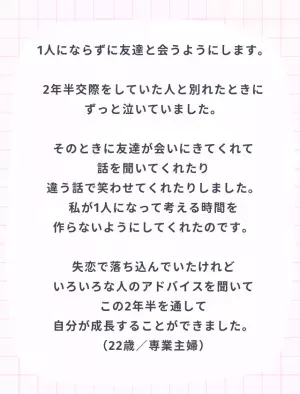 1人にならずに友達と会うようにします。
2年半交際をしていた人と別れたときに
ずっと泣いていました。
そのときに友達が会いにきてくれて
話を聞いてくれたり
違う話で笑わせてくれたりしました。
私が1人になって考える時間を
作らないようにしてくれたのです。
失恋で落ち込んでいたけれど
いろいろな人のアドバイスを聞いて
この2年半を通して
自分が成長することができました。
（22歳／専業主婦）